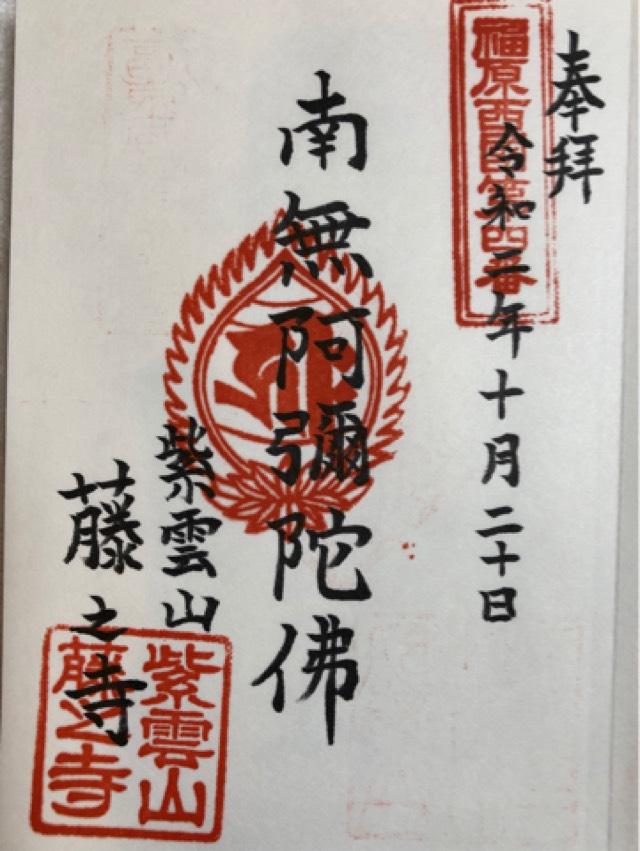 奉拝
福原西国第四番
令和二年十月二十日
南無阿彌陀佛
紫雲山
藤之寺
紫雲山
藤之寺